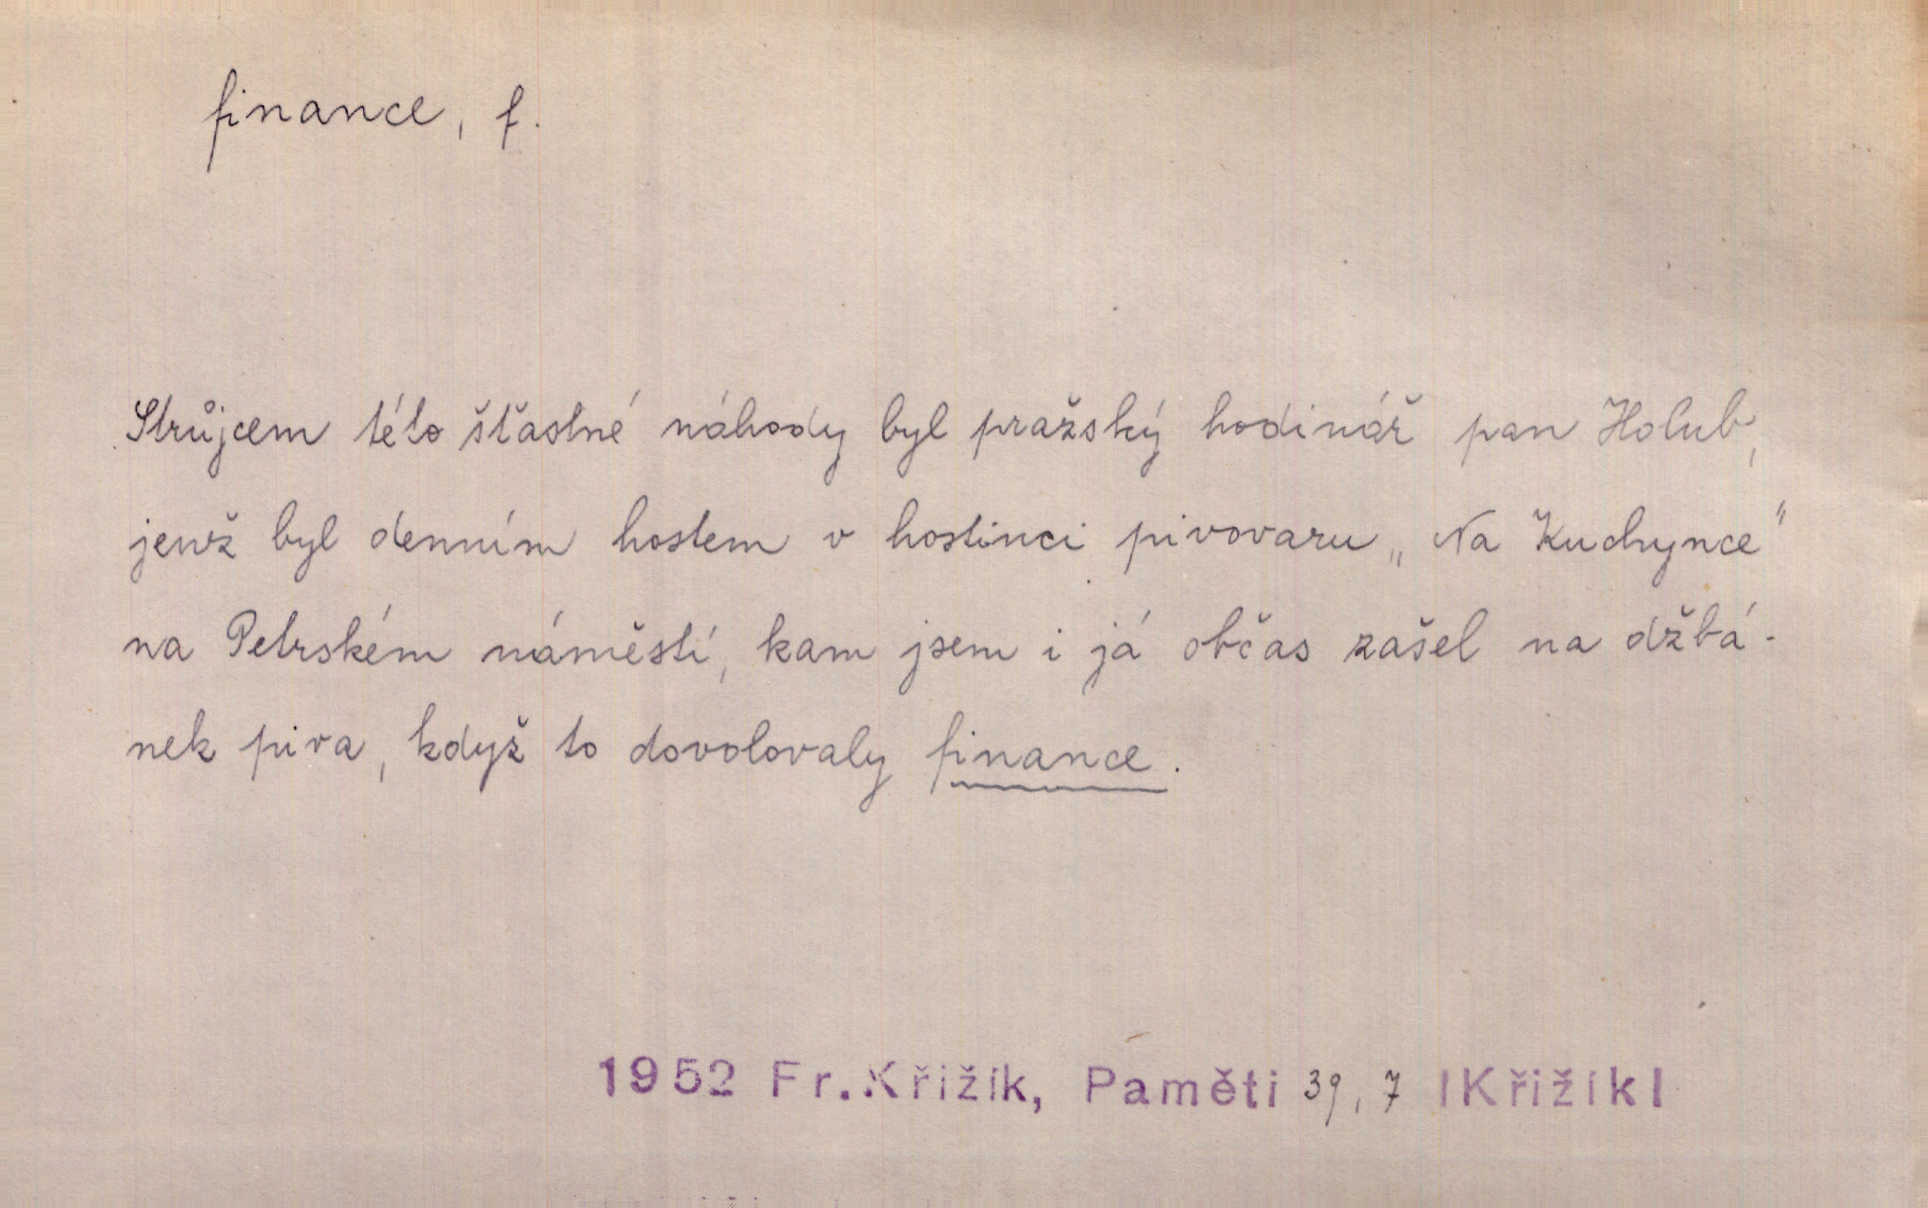 finance, f.
Strůjcem této šťastné náhody byl pražský hodinář pan Holub,
jenž byl denním hostem v hostinci pivovaru „Na Kuchynce"
na Petrském náměstí, kam jsem i já občas zašel na džbá-
nek piva, když to dovolovaly finance.
1952 Fr. Křižík, Paměti 39, 7 |Křižík|